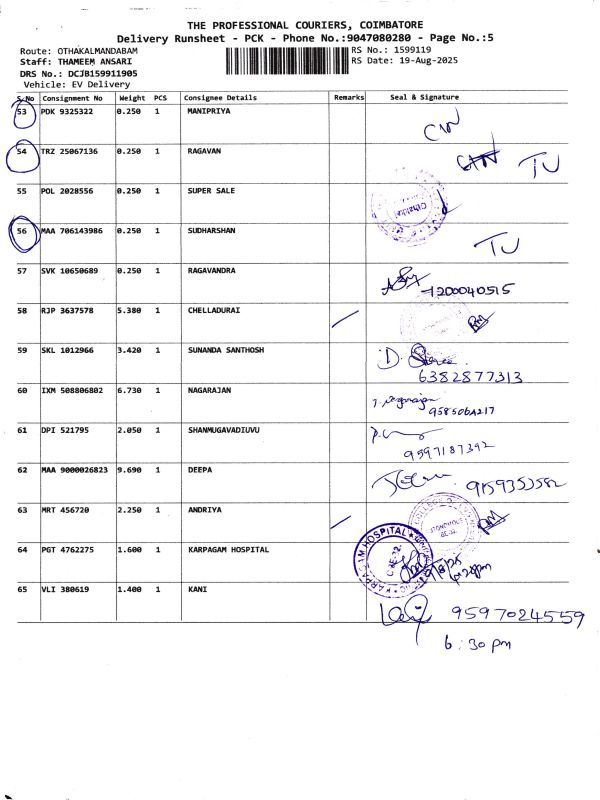 THE PROFESSIONAL COURIERS, COIMBATORE
Delivery Runsheet - PCK - Phone No.:9047080280 - Page No.:5
Route: OTHAKALMANDABAM RS No.: 1599119
Staff: THAMEEM ANSARI RS Date: 19-Aug-2025
DRS No.: DCJB159911905
Vehicle: EV Delivery
S.No Consignment No Weight PCS Consignee Details Remarks Seal & Signature
53 PDK 9325322 0.250 1 MANIPRIYA CN
54 TRZ 25067136 0.250 1 RAGAVAN TU
55 POL 2028556 0.250 1 SUPER SALE
56 MAA 706143986 0.250 1 SUDHARSHAN TU
57 SVK 10650689 0.250 1 RAGAVANDRA 1200040515
58 RJP 3637578 5.380 1 CHELLADURAI
59 SKL 1012966 3.420 1 SUNANDA SANTHOSH D.
6382877313
60 IXM 508806802 6.730 1 NAGARAJAN
61 DPI 521795 2.050 1 SHANMUGAVADIUVU
9597187392
62 MAA 9000026823 9.690 1 DEEPA
63 MRT 456720 2.250 1 ANDRIYA
64 PGT 4762275 1.600 1 KARPAGAM HOSPITAL KARPAGAM HOSPITAL
65 VLI 380619 1.400 1 KANI 9597024559
6:30 pm